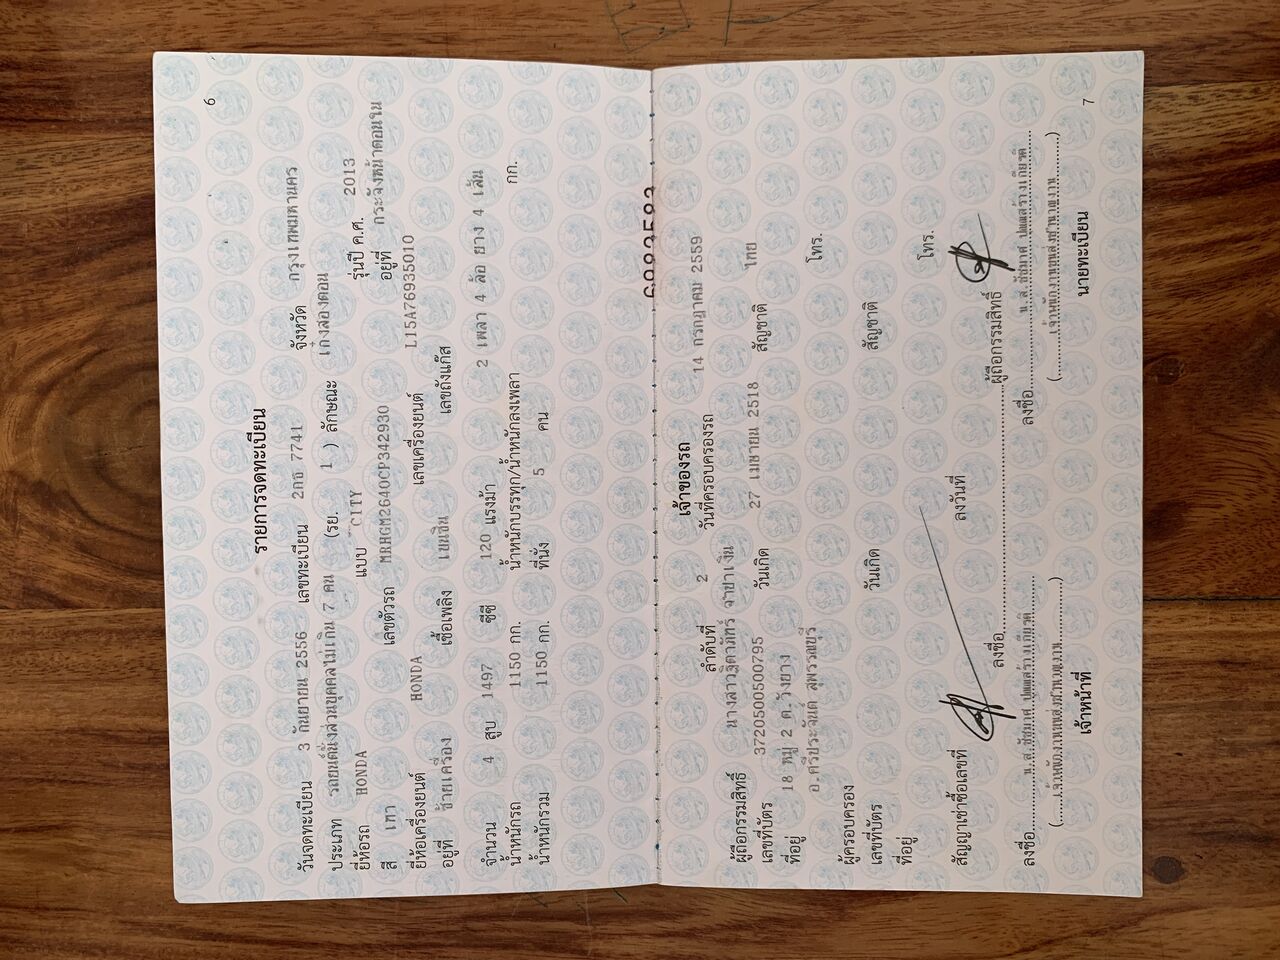 6
รายการจดทะเบียน
วันจดทะเบียน 3 กันยายน 2556 เลขทะเบียน 2กธ 7741 จังหวัด กรุงเทพมหานคร
ประเภท รถยนต์นั่งส่วนบุคคลไม่เกิน 7 คน (รย. 1 ) ลักษณะ เก๋งสองตอน
ยี่ห้อรถ HONDA แบบ CITY รุ่นปี ค.ศ. 2013
สี เทา เลขตัวรถ MRHGM2640CP342930 อยู่ที่ กระจังหน้าตอนใน
ยี่ห้อเครื่องยนต์ HONDA เลขเครื่องยนต์ L15A76935010
อยู่ที่ ซ้ายเครื่อง เชื้อเพลิง เบนซิน เลขถังแก๊ส
จำนวน 4 สูบ 1497 ซีซี 120 แรงม้า 2 เพลา 4 ล้อ ยาง 4 เส้น
น้ำหนักรถ 1150 กก. น้ำหนักบรรทุก/น้ำหนักลงเพลา กก.
น้ำหนักรวม 1150 กก. ที่นั่ง 5 คน
เจ้าของรถ
ลำดับที่ 2 วันที่ครอบครองรถ 14 กรกฎาคม 2559
ผู้ถือกรรมสิทธิ์ นางสาวฐิตาภัทร์ จาปาเงิน
เลขที่บัตร 3720500500795 วันเกิด 27 เมษายน 2518 สัญชาติ ไทย
ที่อยู่ 18 หมู่ 2 ต.วังยาง โทร.
อ.ศรีประจันต์ สุพรรณบุรี
ผู้ครอบครอง
เลขที่บัตร วันเกิด สัญชาติ
ที่อยู่ โทร.
สัญญาเช่าซื้อเลขที่ ลงวันที่
ลงชื่อ ผู้ถือกรรมสิทธิ์
ลงชื่อ น.ส. ลงชื่อ น.ส.
(เจ้าพนักงานขนส่งชำนาญงาน) (เจ้าพนักงานขนส่งชำนาญงาน)
เจ้าหน้าที่ นายทะเบียน
7